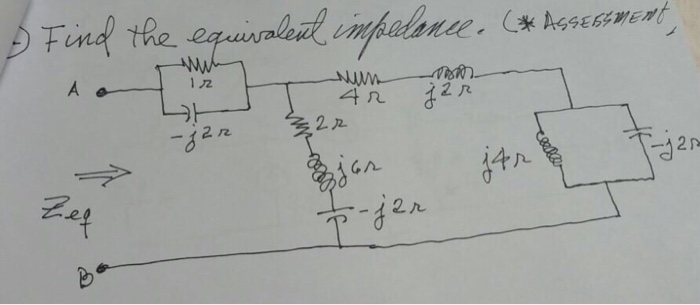 Find the equivalent impedance. (* ASSESSMENT,
1Ω
A
-j2Ω
4Ω
j2Ω
2Ω
j6Ω
-j2Ω
j4Ω
-j2Ω
Zeq
B